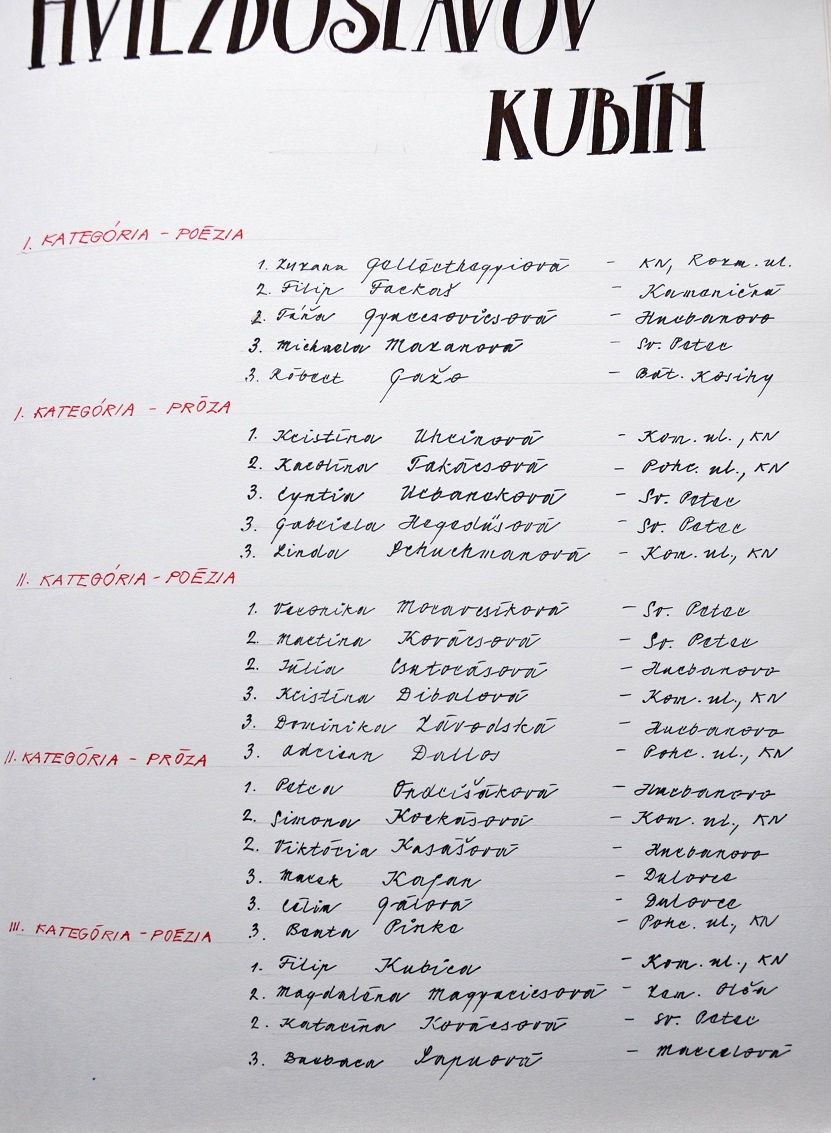 HVIEZDOSLAVOV
KUBÍN
I. KATEGÓRIA - POÉZIA
1. Zuzana - KN, Rozm. ul.
2. Filip Farkaš - Kameničná
2. Táňa Gyarcsovicsová - Hurbanovo
3. Michaela Mazanová - Sv. Peter
3. Róbert Gažo - Bát. Kosihy
I. KATEGÓRIA - PRÓZA
1. Kristína Uhrinová - Kom. ul., KN
2. Karolína Takácsová - Pohr. ul., KN
3. Cyntia Urbaneková - Sv. Peter
3. Gabriela Hegedüsová - Sv. Peter
3. Linda Schuchmanová - Kom. ul., KN
II. KATEGÓRIA - POÉZIA
1. Veronika Moravcsíková - Sv. Peter
2. Martina Kovácsová - Sv. Peter
2. Júlia Csutorásová - Hurbanovo
3. Kristína Dibalová - Kom. ul., KN
3. Dominika Závodská - Hurbanovo
3. Adrian Dallos - Pohr. ul., KN
II. KATEGÓRIA - PRÓZA
1. Petra Ondrišáková - Hurbanovo
2. Simona Korkásová - Kom. ul., KN
2. Viktória Kasášová - Hurbanovo
3. Marek Kajan - Dulovce
3. Célia Gálová - Dulovce
3. Benta Pinke - Pohr. ul., KN
III. KATEGÓRIA - POÉZIA
1. Filip Kubica - Kom. ul., KN
2. Magdaléna Magyaricsová - Zem. Olča
2. Katarína Kovácsová - Sv. Peter
3. Barbara Sapuová - Marcelová